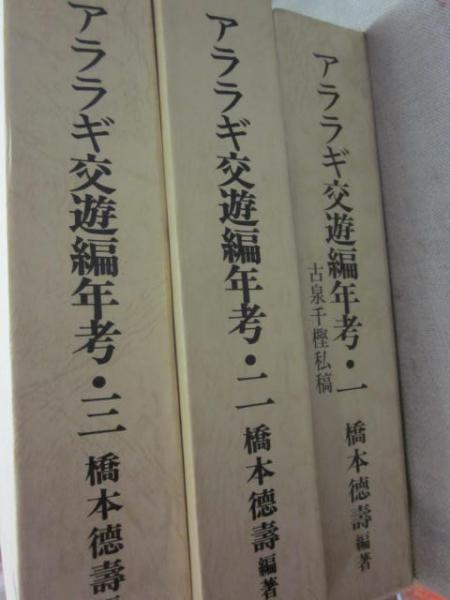 アララギ交遊編年考・三 橋本德壽
アララギ交遊編年考・二 橋本德壽編著
アララギ交遊編年考・一 橋本德壽編著
古泉千樫私稿